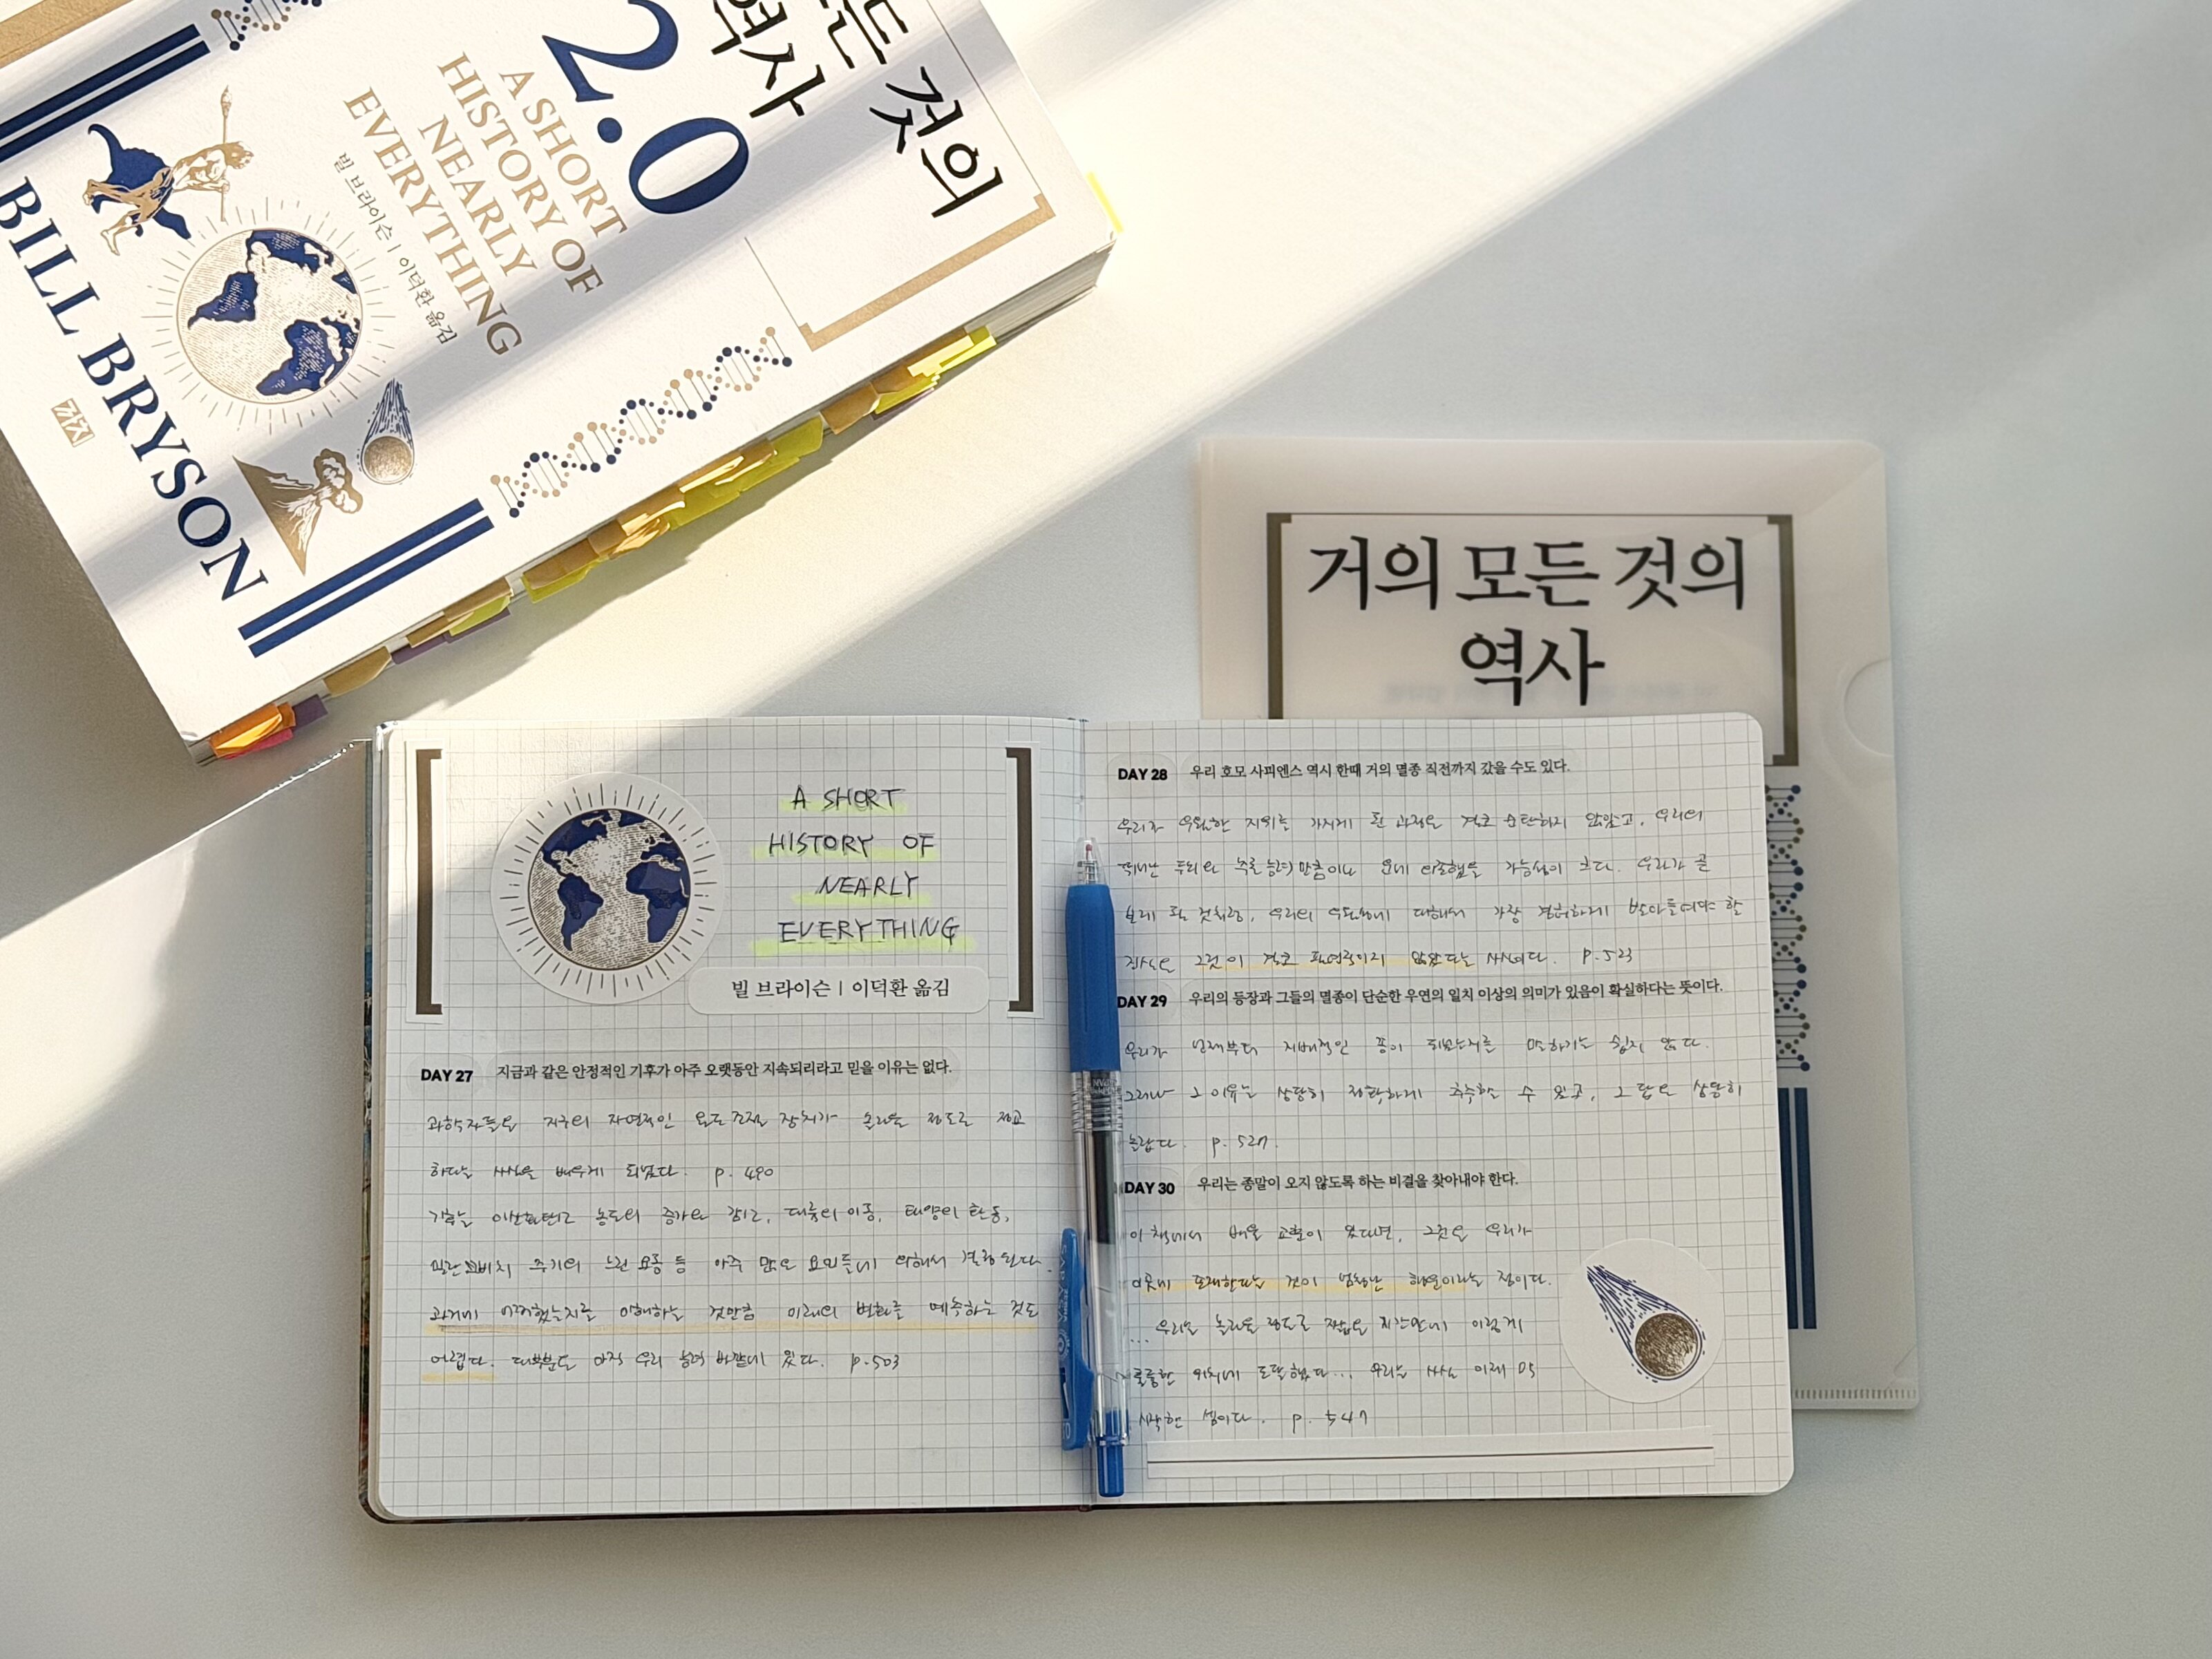 든 것의
역사
2.0
A SHORT
HISTORY OF
NEARLY
EVERYTHING
빌 브라이슨 | 이덕환 옮김
BILL BRYSON
까치
거의 모든 것의
역사
A SHORT
HISTORY OF
NEARLY
EVERYTHING
빌 브라이슨 | 이덕환 옮김
DAY 27 지금과 같은 안정적인 기후가 아주 오랫동안 지속되리라고 믿을 이유는 없다.
과학자들은 지구의 자연적인 온도조절 장치가 놀라울 정도로 정교
하다는 사실을 배우게 되었다. p. 490
기후는 이산화탄소 농도의 증가와 감소, 대륙의 이동, 태양의 활동,
밀란코비치 주기의 느린 요동 등 아주 많은 요인들에 의해서 결정된다.
과거에 어떠했는지를 이해하는 것만큼 미래의 변화를 예측하는 것도
어렵다. 대부분은 아직 우리 능력 바깥에 있다. p.503
DAY 28 우리 호모 사피엔스 역시 한때 거의 멸종 직전까지 갔을 수도 있다.
우리가 우월한 지위를 가지게 된 과정은 결코 순탄하지 않았고, 우리의
뛰어난 두뇌와 추론 능력만큼이나 운에 의존했을 가능성이 크다. 우리가 곧
보게 될 것처럼, 우리의 우월성에 대해서 가장 겸허하게 받아들여야 할
진실은 그것이 결코 필연적이지 않았다는 사실이다. p.523
DAY 29 우리의 등장과 그들의 멸종이 단순한 우연의 일치 이상의 의미가 있음이 확실하다는 뜻이다.
우리가 언제부터 지배적인 종이 되었는지를 말하기는 쉽지 않다.
그러나 그 이유는 상당히 정확하게 추측할 수 있고, 그 답은 상당히
놀랍다. p. 527.
DAY 30 우리는 종말이 오지 않도록 하는 비결을 찾아내야 한다.
이 책에서 배울 교훈이 있다면, 그것은 우리가
이곳에 존재한다는 것이 엄청난 행운이라는 점이다.
... 우리는 놀라울 정도로 짧은 시간 안에 이렇게
훌륭한 위치에 도달했다... 우리는 사실 이제 막
시작한 셈이다. p. 547